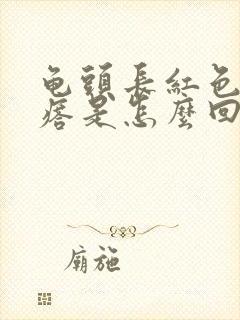 龟頭長紅色
痞是怎麼回
廟施